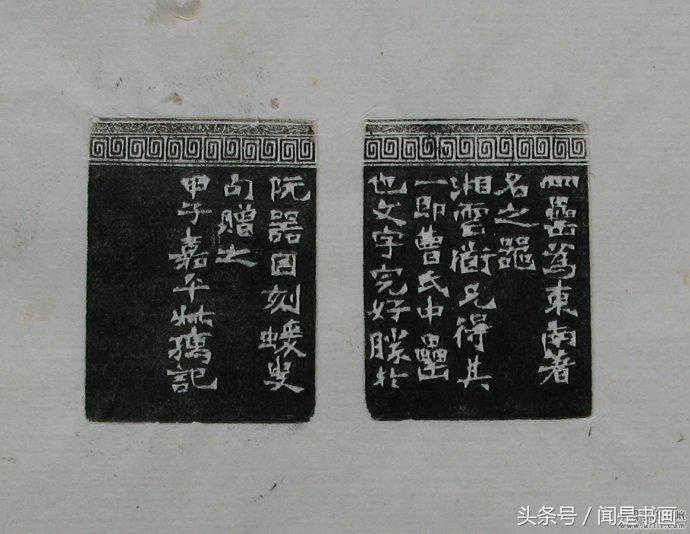 四罍為東南著
名之器
湘雲衜兄得其
一即曹氏中罍
也文字完好勝於
阮器因刻蝯叟
句贈之
甲子嘉平記
头条号 / 闻是书画